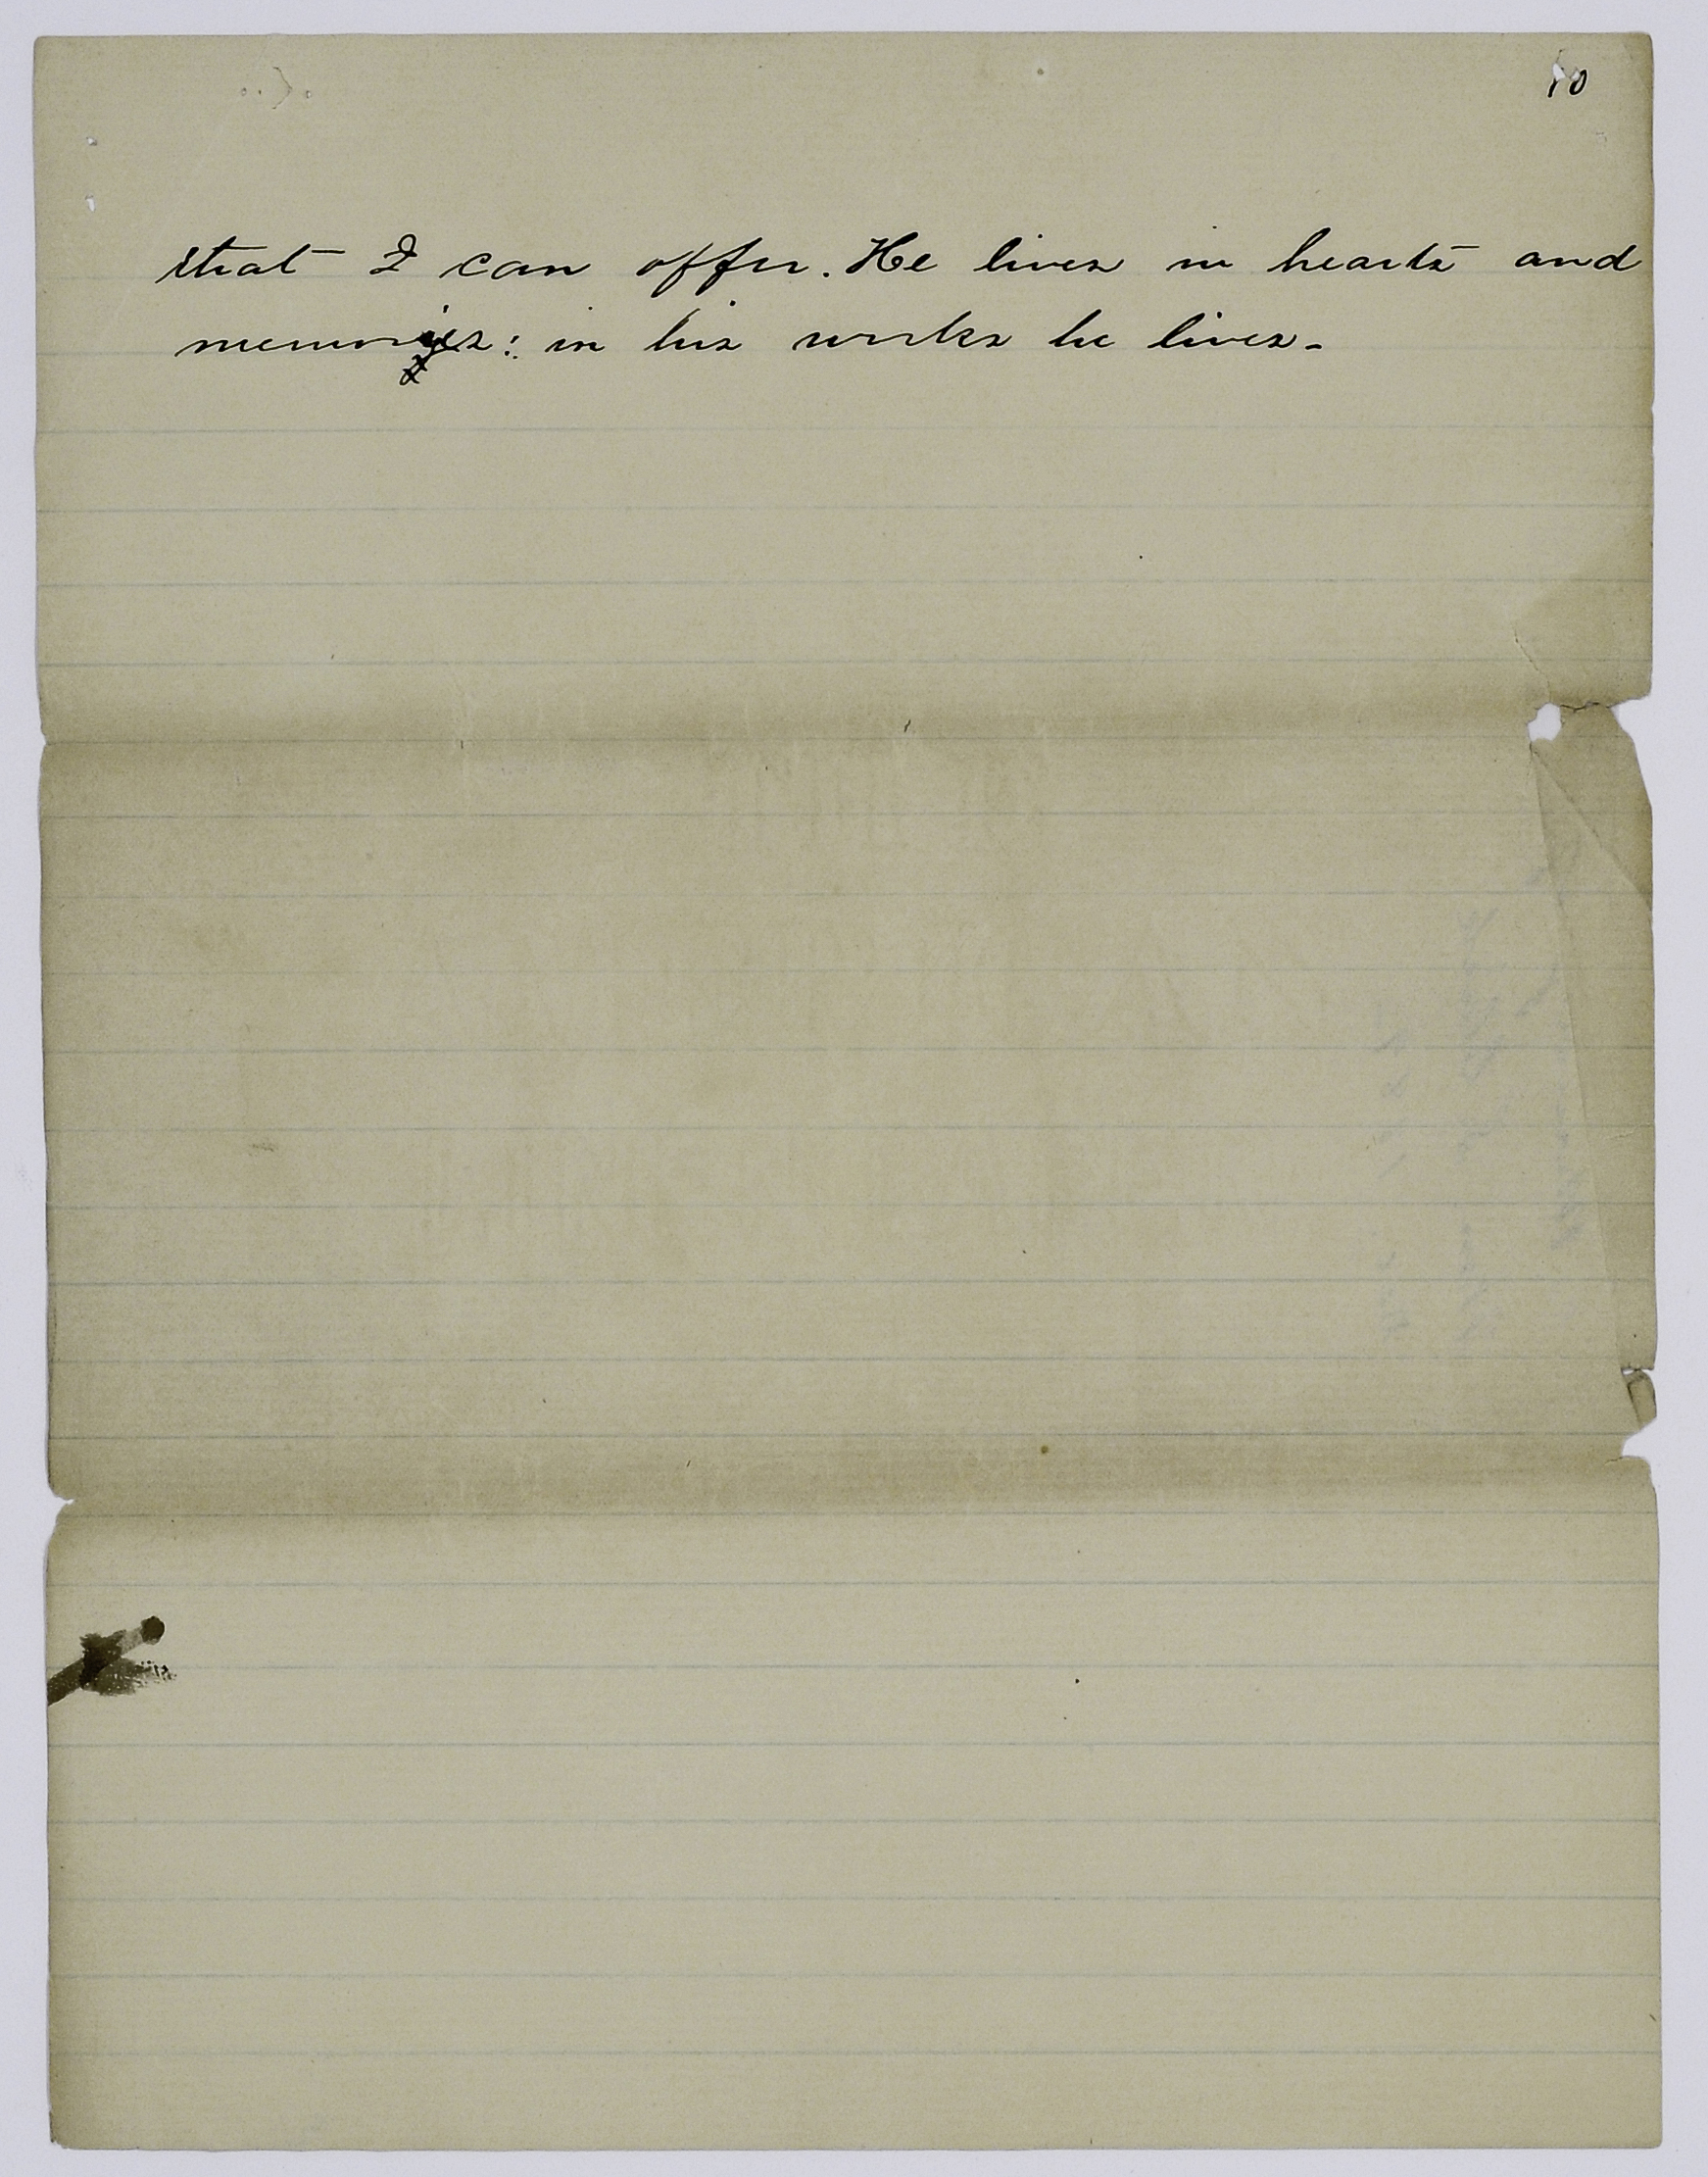 10
that I can offer. He lives in hearts and
memories: in his works he lives.